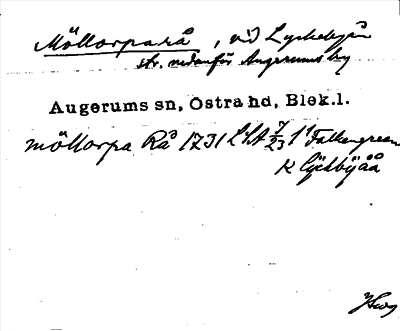 Möllorpa rå, vid Lyckebyån
str. nedanför Augerums by
Augerums sn, Östra hd, Blek.l.
möllorpa Rå 1731 LSA 7/23 1¹ Falkengreen
K lyckbÿåå